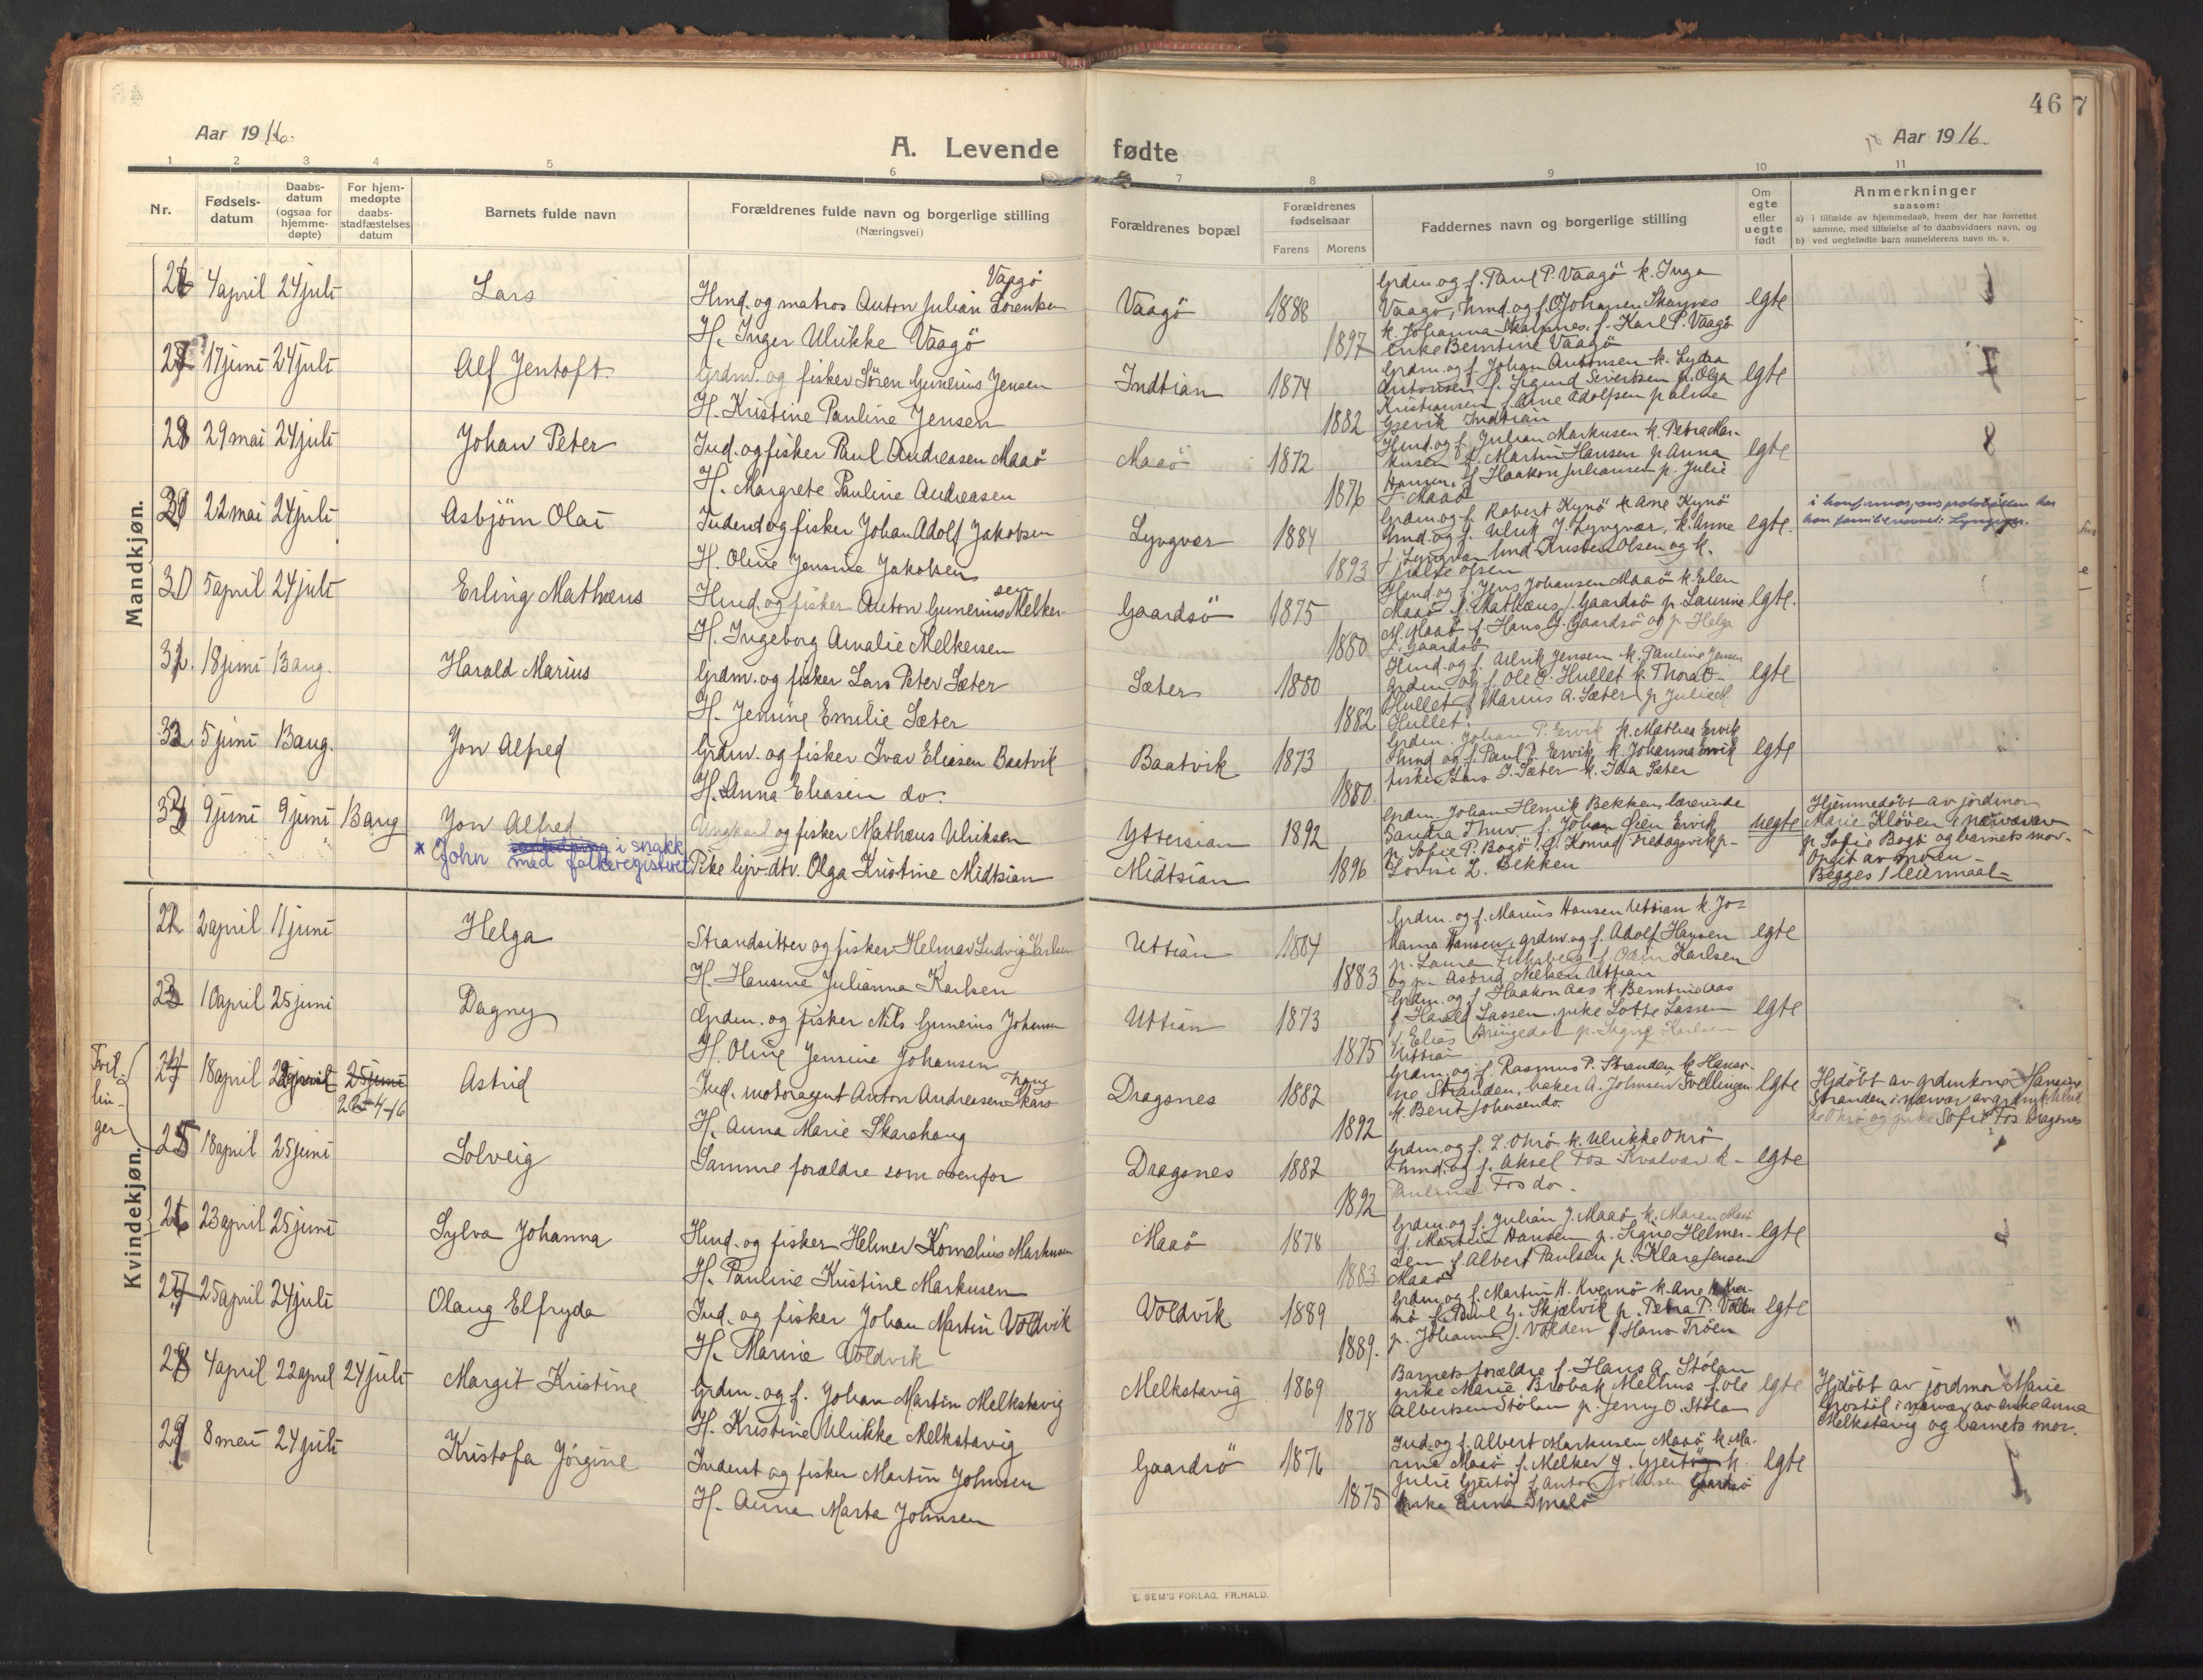 46 7
Aar 1916.
A. Levende fødte
Aar 1916.
1 2 3 4 5 6 7 8 9 10 11
Nr.
Fødselsdatum
Daabsdatum (ogsaa for hjemmedøpte)
For hjemmedøpte daabsstadfæstelses datum
Barnets fulde navn
Forældrenes fulde navn og borgerlige stilling
(Næringsvei)
Forældrenes bopæl
Forældrenes fødselsaar
Farens Morens
Faddernes navn og borgerlige stilling
Om egte eller uegte født
Anmerkninger
saasom:
a) i tilfælde av hjemmedaab, hvem der har forrettet samme, med tilføielse af to daabsvidners navn, og
b) ved uegtefødte barn anmelderens navn m. v.
Mandkjøn.
26 4 april 24 juli Lars
Hmd. og matros Anton Julian Lorentsen Vaagö
H. Inger Ulrikke Vaagö
Vaagö 1888 1897
Grdm. og f. Paul P. Vaagö k. Inga
Vaagö, hmd. og f. O. Johansen Skarpnes
k. Johanna Skarpnes, f. Karl P. Vaagö
enke Berntine Vaagö
egte
27 17 juni 24 juli Alf Jentoft
Grdm. og fisker Sören Gunerius Jensen
H. Kristine Pauline Jensen
Indtian 1874 1882
Grdm. og f. Johan Antonsen k. Lydia
Antonsen f. Sigurd Sivertsen p. Olga
Kristiansen f. Arne Adolfsen p. Aline
Gjevik Indtian
egte
28 29 mai 24 juli Johan Peter
Ind. og fisker Paul Andreasen Maaö
H. Margrete Pauline Andreasen
Maaö 1872 1876
Hmd. og f. Julian Markusen k. Petra Markusen
f. Martin Hansen p. Anna
Hansen, f. Haakon Julianssen p. Julie
J. Maaö
egte
8
29 22 mai 24 juli Asbjörn Olai
Inderst og fisker Johan Adolf Jakobsen
H. Oline Jensine Jakobsen
Lyngvær 1884 1893
Grdm. og f. Robert Kynö k. Ane Kynö
hmd. og f. Ulrik J. Lyngvær, k. Anne
J. Lyngvær hmd. Kristen Olsen og k.
Olsen
egte.
i konfirmasjonsprotokollen har
han familienavnet: Lyngvær.
30 5 april 24 juli Erling Mathæus
Hmd. og fisker Anton Gunerius Melkersen
H. Ingeborg Amalie Melkersen
Gaardsö 1875 1880
Hmd. og f. Jens Johansen Maaö k. Elen
Maaö f. Mathæus J. Gaardsö p. Laurine
M. Maaö f. Hans J. Gaardsö og p. Helga
J. Gaardsö
egte.
31. 18 juni 13 aug. Harald Marius
Grdm. og fisker Lars Peter Sæter
H. Jensine Emilie Sæter
Sæter 1880 1882
Hmd. og f. Alrik Jensen k. Pauline Jensen
Grdm. og f. Ole O. Hullet k. Thora O.
Hullet f. Marius A. Sæter p. Julie M.
Hullet.
egte
32 5 juni 13 aug. Jon Alfred
Grdm. og fisker Ivar Eliasen Baatvik
H. Anna Eliasen do.
Baatvik 1873 1880.
Grdm. Johan P. Ervik k. Mathea Ervik
Hmd. og f. Paul P. Ervik k. Johanna Ervik
fisker Lars J. Sæter k. Ida Sæter
egte
33 9 juni 9 juni 13 aug Jon Alfred
* John i snakk med folkeregisteret
Ungkarl og fisker Mathæus Ulriksen
Pike tjv-dtr. Olga Kristine Midtsian
Yttersian 1892
Midtsian 1896
Grdm. Johan Henrik Bekken, lærerinde
Sandra Thur f. Johan Öien Ervik
p. Sofie P. Bogö f. Konrad Hedagsvik p.
Lovise L. Bekken
uegte
Hjemmedöbt av jordmor
Marie Klöven i nærvær av
p. Sofie Bogö og barnets mor.
Opgit av moren.
Begges 1 leiermaal
Kvindekjøn.
22 2 april 11 juni Helga
Strandsitter og fisker Helmer Ludvig Karlsen
H. Hansine Julianna Karlsen
Uttian 1884 1883
Grdm. og f. Marius Hansen Uttian k. Johanna
Hansen, grdm. og f. Adolf Hansen
p. Laura f. Karlsen
og p. Astrid Nielsen Uttian
egte
23 10 april 25 juni Dagny
Grdm. og fisker Nils Gunerius Johansen
H. Oline Jensine Johansen
Uttian 1873 1875
Grdm. og f. Haakon Aas k. Berntine Aas
f. Harald Lassen, pike Lotte Lassen
f. Elias Bringedal p. Signe Karlsen
Uttian
egte
Tvillinger
24 18 april 22 april 25 juni 22-4-16 Astrid
Ind. motoragent Anton Andreasen Skarshaug
H. Anna Marie Skarshaug
Dragsnes 1882 1892
Grdm. og f. Rasmus P. Stranden k. Hansine
Stranden, baker A. Johnsen Svellingen
k. Berit Johnsen do.
egte
Hjdöbt av grdmkone Hansine
Stranden i nærvær av
Ohrö og pike Sofie Fos Dragsnes
25 18 april 25 juni Solveig
Samme forældre som ovenfor
Dragsnes 1882 1892
Grdm. og f. L. Ohrö k. Ulrikke Ohrö
hmd. og f. Aksel Fos Kvalvær k.
Pauline Fos do.
egte
26 23 april 25 juni Sylva Johanna
Hmd. og fisker Helmer Kornelius Markusen
H. Pauline Kristine Markusen
Maaö 1878 1883
Grdm. og f. Julian J. Maaö k. Maren Maaö
f. Martin Hansen p. Signe Helmersen
f. Albert Paulsen p. Klara Jensen
Maaö
egte
27 25 april 24 juli Olaug Elfryda
Ind. og fisker Johan Martin Voldvik
H. Marine Voldvik
Voldvik 1889 1889.
Grdm. og f. Martin H. Kvernö k. Ane Kvernö
f. Paul G. Skjelvik p. Petra P. Volden
p. Johanna J. Volden f. Hans Tröen
egte
28 4 april 22 april 24 juli Margit Kristine
Grdm. og f. Johan Martin Melkstavig
H. Kristine Ulrikke Melkstavig
Melkstavig 1869 1878
Barnets forældre f. Hans A. Stölan
pike Marie Brobak Melhus f. Ole
Albertsen Stölan p. Jenny O. Stölan
egte
Hjdöbt av jordmor Marie
i nærvær av enke Anna
Melkstavig og barnets mor.
29 8 mai 24 juli Kristofa Jörgine
Inderst og fisker Martin Johnsen
H. Anna Marta Johnsen
Gaardsö 1876 1875
Ind. og f. Albert Markusen Maaö k. Marine
Maaö f. Melker J. Gjertöy k.
Julie Gjertöy f. Anton Johansen Gaardsö
enke Anna Smalö
egte
E. SEM'S FORLAG, FR.HALD.